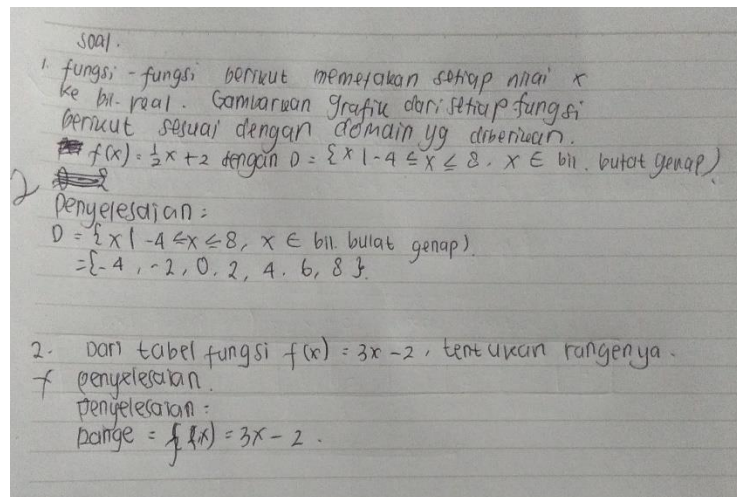 soal.
1. fungsi - fungsi berikut memetakan setiap nilai x
ke bil. real. Gambarkan grafik dari setiap fungsi
berikut sesuai dengan domain yg diberikan.
f(x) = ½x + 2 dengan D = {x | -4 ≤ x ≤ 8, x ∈ bil. bulat genap)
2
Penyelesaian :
D = {x | -4 ≤ x ≤ 8, x ∈ bil. bulat genap)
= {-4, -2, 0, 2, 4. 6, 8}.
2. Dari tabel fungsi f(x) = 3x - 2, tentukan rangenya.
penyelesaian.
penyelesaian :
Range = f(x) = 3x - 2.